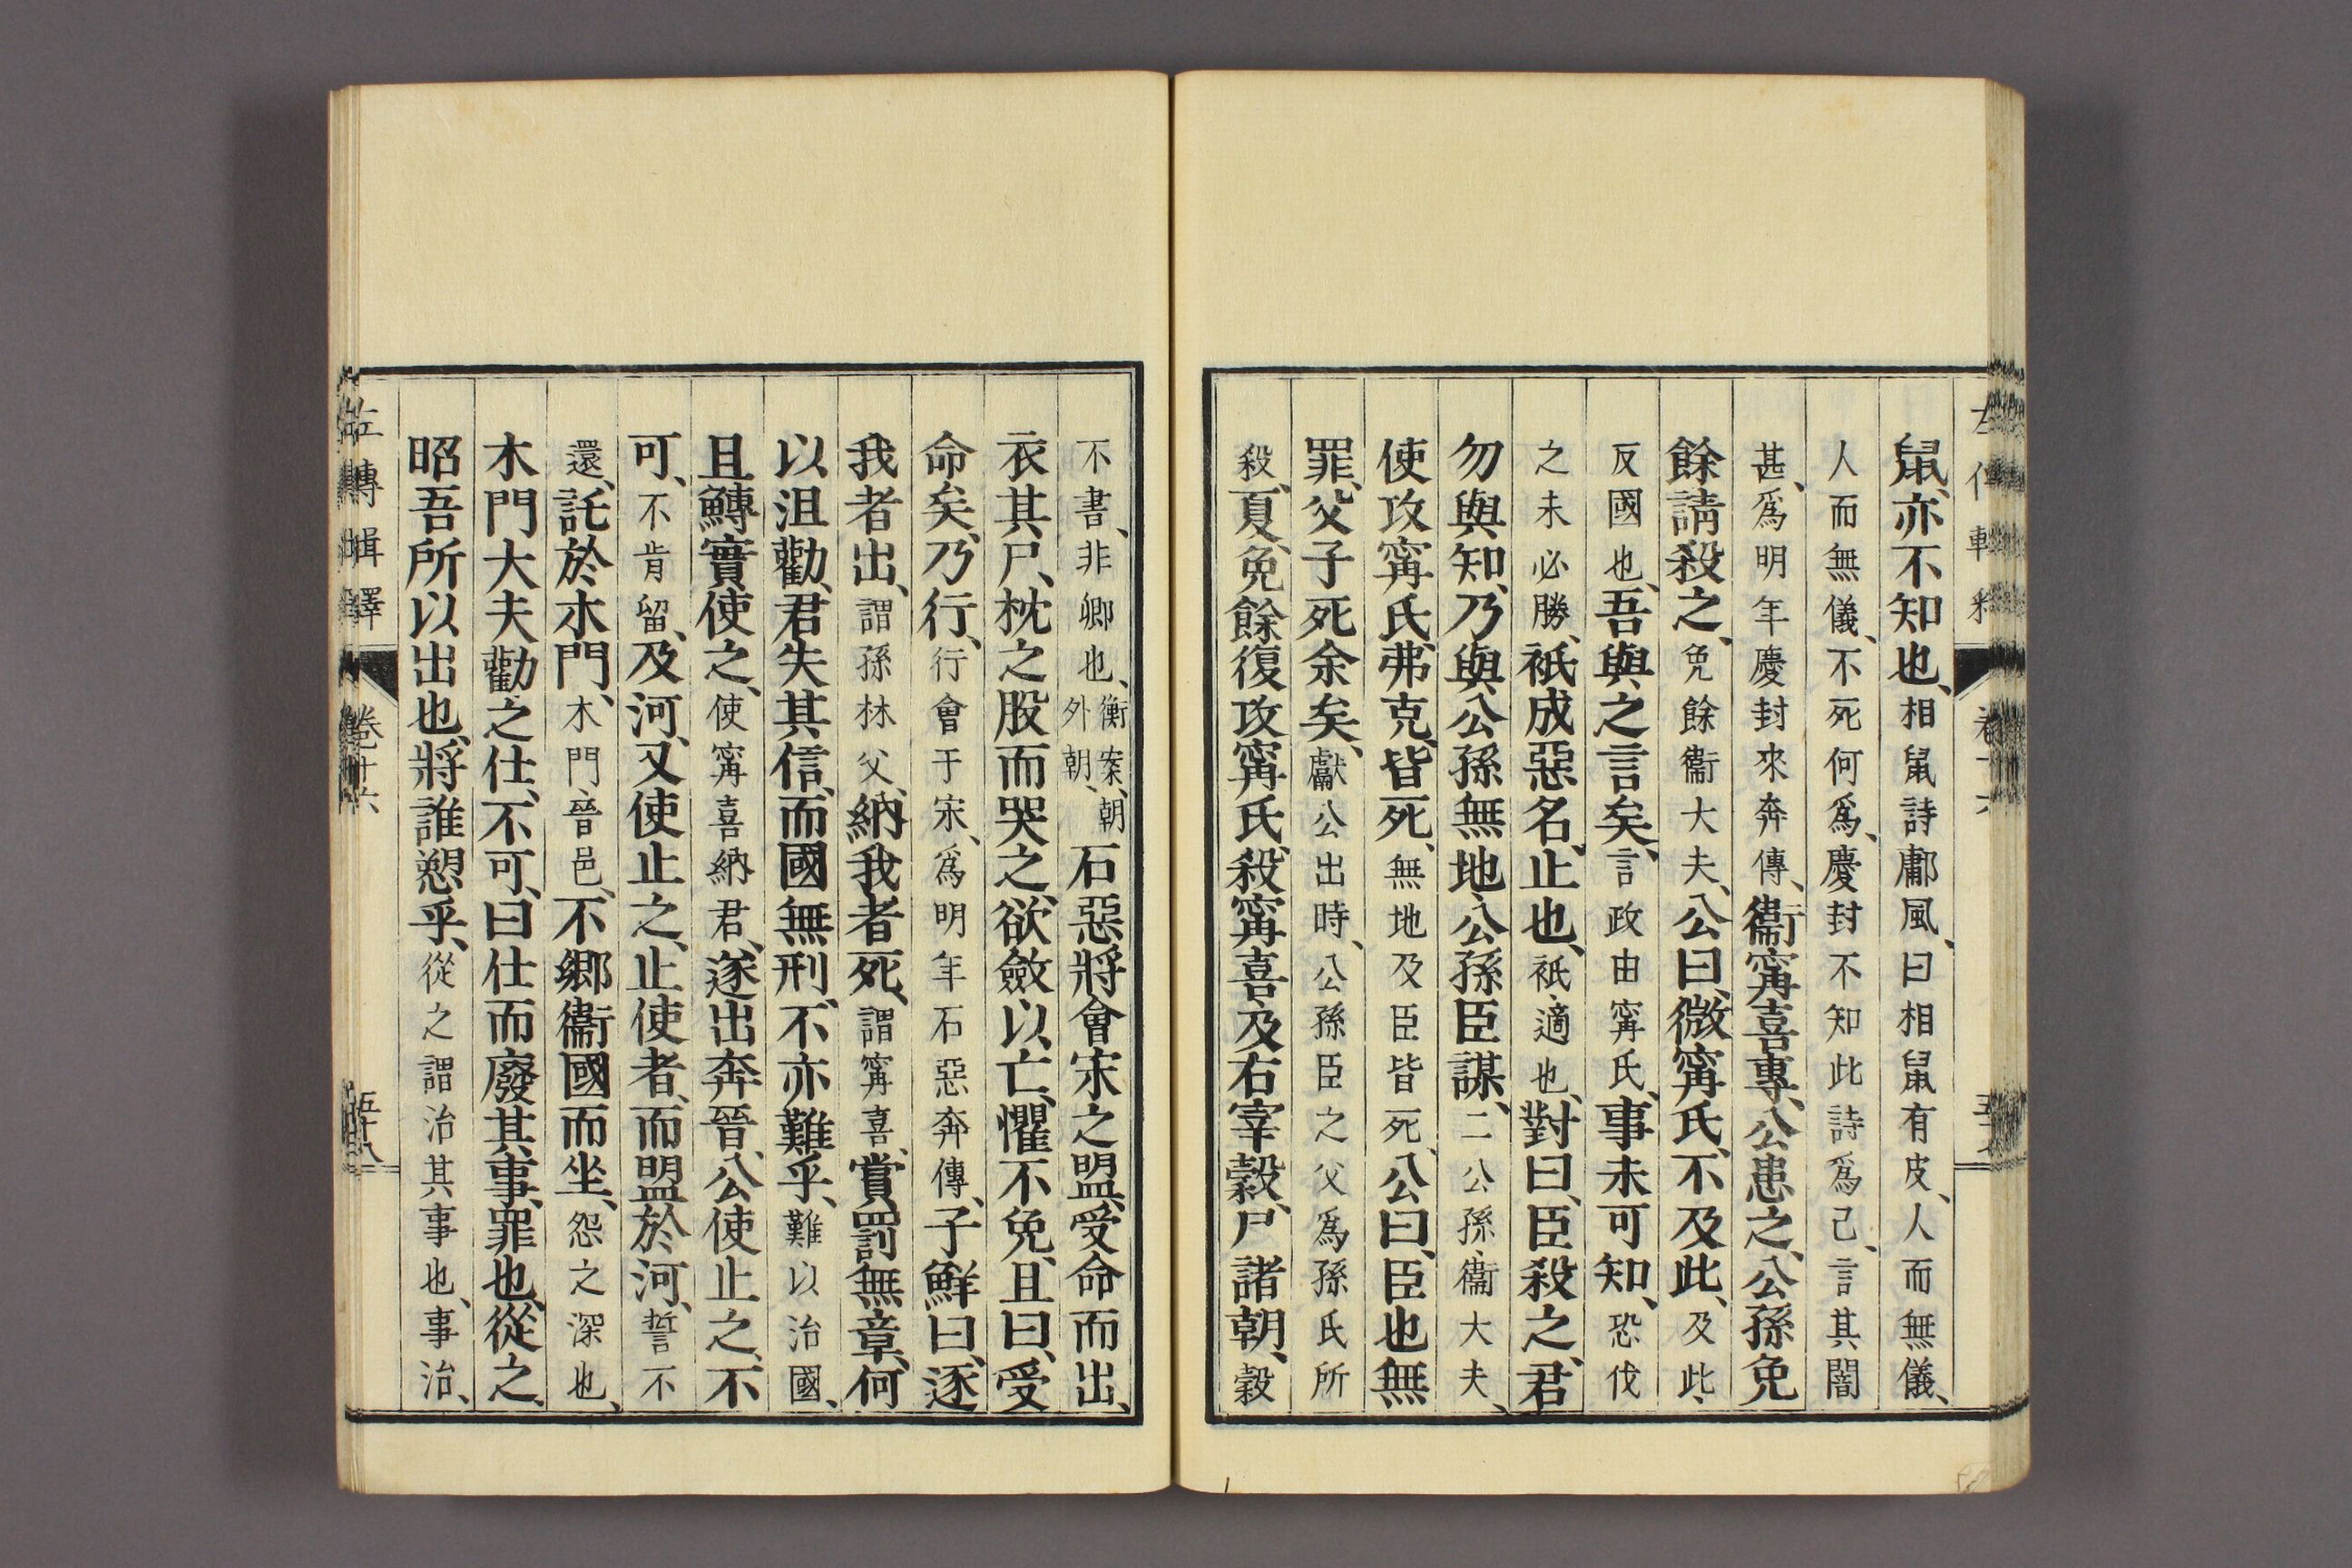 鼠、亦不知也、相鼠詩鄘風、曰相鼠有皮、人而無儀、
人而無儀、不死何爲、慶封不知此詩爲己、言其闇
甚、爲明年慶封來奔傳、衞甯喜專、公患之、公孫免
餘請殺之、免餘衞大夫、公曰、微甯氏、不及此、及此、
反國也、吾與之言矣、言政由甯氏、事未可知、恐伐
之未必勝、衹成惡名、止也、衹、適也、對曰、臣殺之、君
勿與知、乃與公孫無地、公孫臣謀、二公孫、衞大夫、
使攻甯氏、弗克、皆死、無地及臣皆死、公曰、臣也無
罪、父子死余矣、獻公出時、公孫臣之父爲孫氏所
殺、夏、免餘復攻甯氏、殺甯喜及右宰穀、尸諸朝、穀
不書、非卿也、衡案、朝、外朝、石惡將會宋之盟、受命而出、
衣其尸、枕之股而哭之、欲斂以亡、懼不免、且曰、受
命矣、乃行、行會于宋、爲明年石惡奔傳、子鮮曰、逐
我者出、謂孫林父、納我者死、謂甯喜、賞罰無章、何
以沮勸、君失其信、而國無刑、不亦難乎、難以治國、
且鱄實使之、使甯喜納君、遂出奔晉、公使止之、不
可、不肯留、及河、又使止之、止使者、而盟於河、誓不
還、託於木門、木門、晉邑、不鄉衞國而坐、怨之深也、
木門大夫勸之仕、不可、曰仕而廢其事、罪也、從之、
昭吾所以出也、將誰愬乎、從之謂治其事也、事治、
左傳輯釋 卷十六 五十八